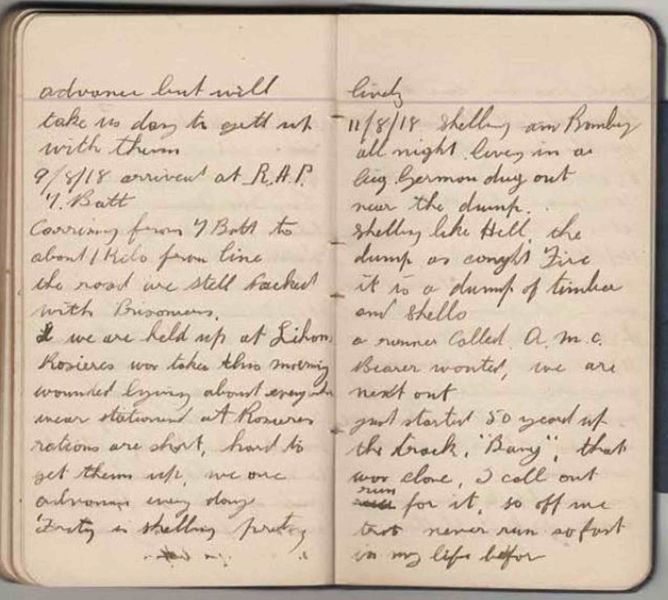 advance but will
take us day to gett up
with them
9/8/18 arrived at R.A.P.
7. Batt
Carrying from 7 Batt to
about 1 Kilo from line
the road are still Packed
with Prisoners.
we are held up at Lihons
Rosieres was taken this morning
wounded lying about everywhere
wear stationed at Rosieres
rations are short, hard to
get them up, we are
advancing every day
Fritz is shelling pretty
lively
11/8/18 Shelling and Bombing
all night living in a
big German dug out
near the dump.
Shelling like Hell, the
dump as caught Fire
it is a dump of timber
and Shells
a runner Called A.M.C.
Bearer wanted, we are
next out
just started 50 yeard up
the track, "Bang", that
was close, I call out
run for it, so off we
never run so fast
in my life befor